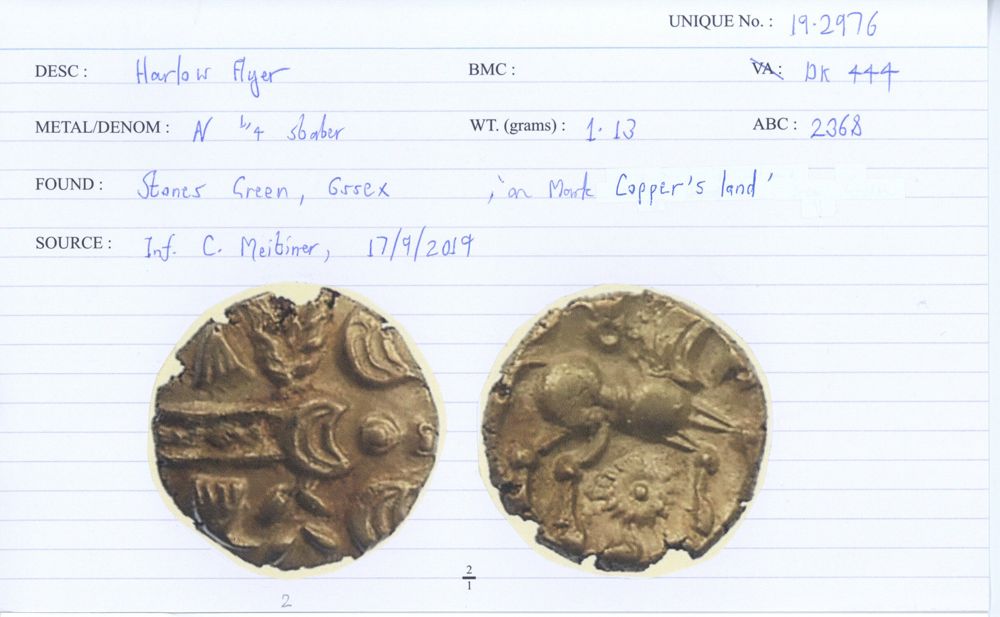 UNIQUE No. : 19.2976
DESC : Harlow Flyer BMC : VA: DK 444
METAL/DENOM : N 1/4 stater WT. (grams) : 1.13 ABC : 2368
FOUND : Stones Green, Essex , 'on Mark Copper's land'
SOURCE : Inf. C. Meibiner, 17/9/2019
2
1
2